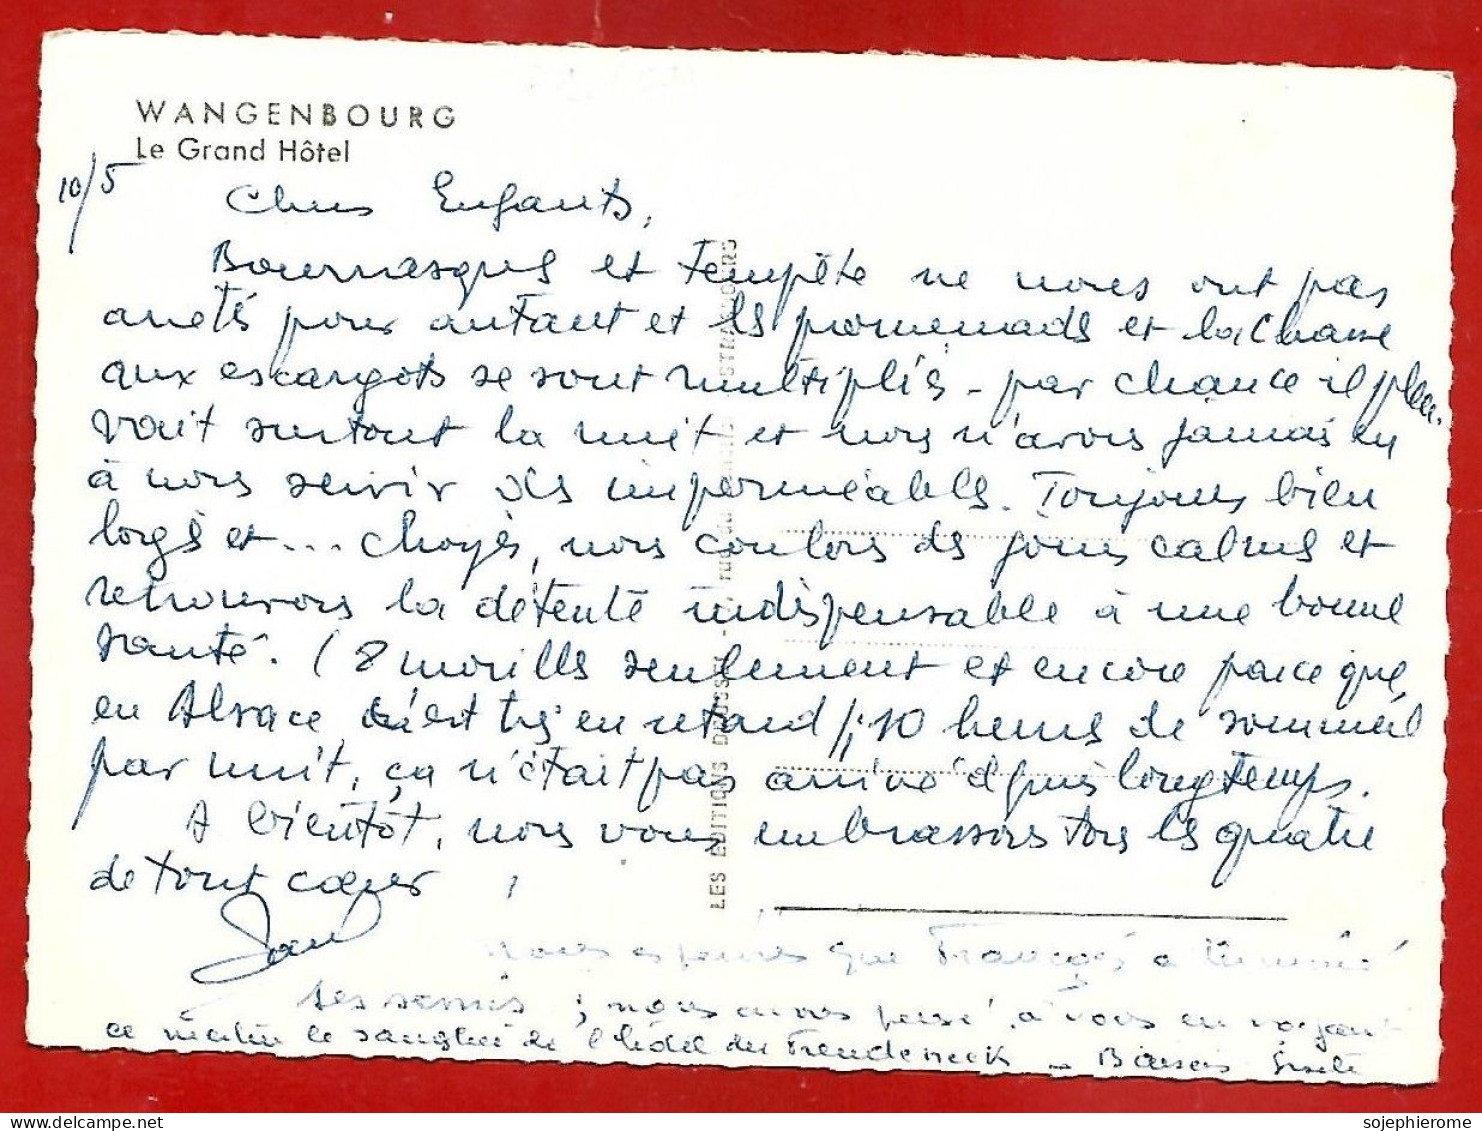 WANGENBOURG
Le Grand Hôtel
10/5
Chers Enfants,
Bourrasques et tempête ne nous ont pas
arrêtés pour autant et les promenades et la chasse
aux escargots se sont multipliés - par chance il pleu-
vait surtout la nuit et nous n'avons jamais eu
à nous servir des imperméables. Toujours bien
logés et... choyés, nous coulons des jours calmes et
retrouvons la détente indispensable à une bonne
santé. (8 morilles seulement et encore parce que,
en Alsace, c'est très en retard); 10 heures de sommeil
par nuit, ça n'était pas arrivé depuis longtemps.
A bientôt, nous vous embrassons tous les quatre
de tout cœur
nous espérons que François a terminé
ses semis ; nous avons pensé à vous en voyant
ce matin le sanglier de l'hôtel du Freudeneck - Baisers
LES EDITIONS D'ART - rue du STRASBOURG
sojephierome